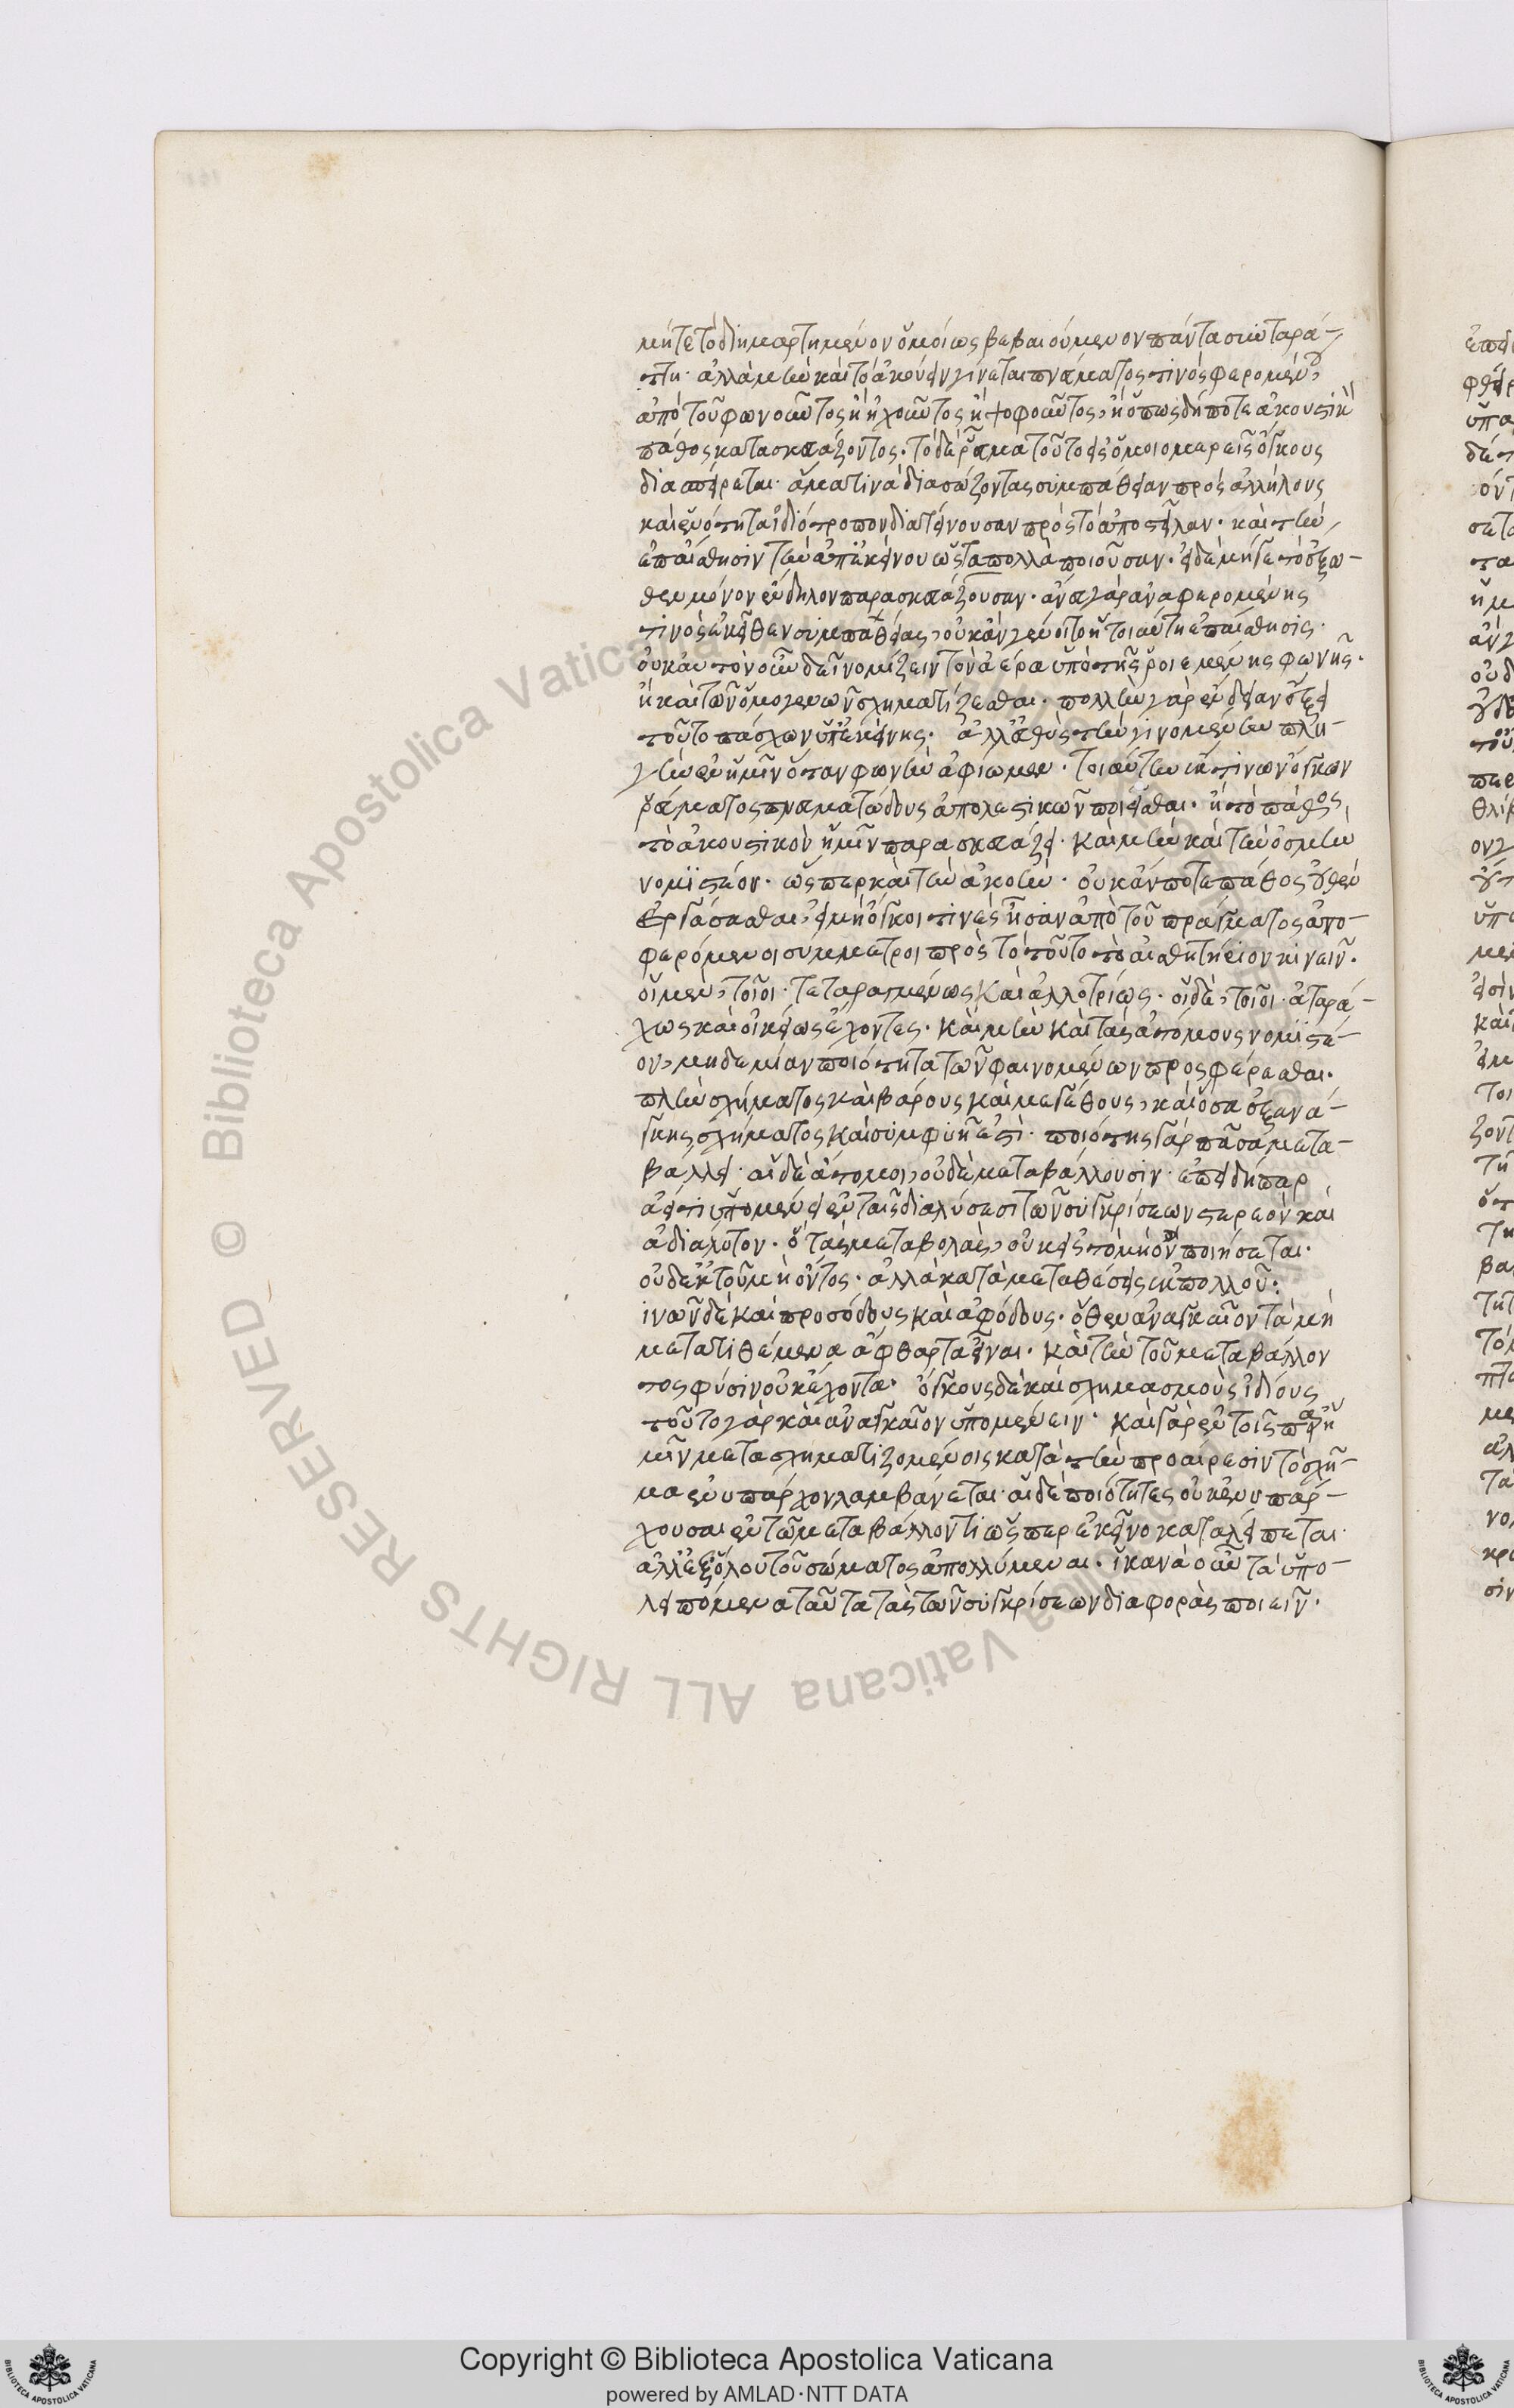 μήτε τὸ διημαρτημένον ὁμοίως βεβαιούμενον πάντα συνταρά-
τῃ· ἀλλὰ μὴν καὶ τὸ ἀκούειν γίνεται πνεύματός τινος φερομένου
ἀπὸ τοῦ φωνοῦντος ἢ ἠχοῦντος ἢ ψοφοῦντος, ἢ ὅπως δήποτε ἀκουστικὸν
πάθος κατασκευάζοντος. τὸ δὲ ῥεῦμα τοῦτο εἰς ὁμοιομερεῖς ὄγκους
διασπείρεται· ἅμα τινὰ διασώζοντας συμπάθειαν πρὸς ἀλλήλους
καὶ ἑνότητα ἰδιότροπον διατείνουσαν πρὸς τὸ ἀποστεῖλαν· καὶ τὴν
ἐπαίσθησιν τὴν ἐπ' ἐκείνου ὡς τὰ πολλὰ ποιοῦσαν. εἰ δὲ μή γε τὸ ἔξω-
θεν μόνον ἔνδηλον παρασκευάζουσαν. ἄνευ γὰρ ἀναφερομένης
τινὸς ἐκεῖθεν συμπαθείας, οὐκ ἂν γένοιτο ἡ τοιαύτη ἐπαίσθησις.
οὐκ αὐτὸν οὖν δεῖ νομίζειν τὸν ἀέρα ὑπὸ τῆς προιεμένης φωνῆς.
ἢ καὶ τῶν ὁμογενῶν σχηματίζεσθαι· πολλὴν γὰρ ἔνδειαν ἕξει
τοῦτο πάσχων ὑπ' ἐκείνης. ἀλλ' εὐθὺς τὴν γινομένην πλη-
γὴν ἐν ἡμῖν ὅταν φωνὴν ἀφίωμεν· τοιαύτην ἔκ τινων ὄγκων
ῥεύματος πνευματώδους ἀπολεστικῶν ποιεῖσθαι. ἢ τὸ πάθος
τὸ ἀκουστικὸν ἡμῖν παρασκευάζει. καὶ μὴν καὶ τὴν ὀσμὴν
νομιστέον. ὥσπερ καὶ τὴν ἀκοήν. οὐκ ἄν ποτε πάθος οὐθὲν
ἐργάσασθαι, εἰ μὴ ὄγκοι τινὲς ἦσαν ἀπὸ τοῦ πράγματος ἀπο-
φερόμενοι σύμμετροι πρὸς τὸ τοῦτο τὸ αἰσθητήριον κινεῖν.
οἱ μὲν, τοῖοι· τεταραγμένως καὶ ἀλλοτρίως. οἱ δὲ, τοῖοι· ἀταρά-
χως καὶ οἰκείως ἔχοντες. καὶ μὴν καὶ τὰς ἀτόμους νομιστέ-
ον, μηδεμίαν ποιότητα τῶν φαινομένων προσφέρεσθαι.
πλὴν σχήματος καὶ βάρους καὶ μεγέθους, καὶ ὅσα ἐξ ἀνά-
γκης σχήματος καὶ συμφυῆ ἐστί. ποιότης γὰρ πᾶσα μετα-
βάλλει· αἱ δὲ ἄτομοι, οὐδὲ μεταβάλλουσιν· ἐπειδήπερ
ἀεί τι ὑπομένει ἐν ταῖς διαλύσεσι τῶν συγκρίσεων στερεὸν καὶ
ἀδιάλυτον. ὃ τὰς μεταβολὰς, οὐκ εἰς τὸ μὴ ὂν ποιήσεται.
οὐδ' ἐκ τοῦ μὴ ὄντος. ἀλλὰ κατὰ μεταθέσεις ἐκ πολλοῦ·
ινῶν δὲ καὶ προσόδους καὶ ἀφόδους. ὅθεν ἀναγκαῖον τὰ μὴ
μετατιθέμενα ἄφθαρτα εἶναι. καὶ τὴν τοῦ μεταβάλλον
τος φύσιν οὐκ ἔχοντα. ὄγκους δὲ καὶ σχηματισμοὺς ἰδίους
τοῦτο γὰρ καὶ ἀναγκαῖον ὑπομένειν. καὶ γὰρ ἐν τοῖς παρ' ἡ
μῖν μετασχηματιζομένοις κατὰ τὴν προαίρεσιν τὸ σχῆ-
μα ἐνυπάρχον λαμβάνεται· αἱ δὲ ποιότητες οὐκ ἐνυπάρ-
χουσαι ἐν τῷ μεταβάλλοντι ὥσπερ ἐκεῖνο καταλείπεται·
ἀλλ' ἐξ ὅλου τοῦ σώματος ἀπολλύμεναι. ἱκανὰ οὖν τὰ ὑπο-
λειπόμενα ταῦτα τὰς τῶν συγκρίσεων διαφορὰς ποιεῖν.
Copyright © Biblioteca Apostolica Vaticana
powered by AMLAD·NTT DATA
© Biblioteca Apostolica Vaticana ALL RIGHTS RESERVED